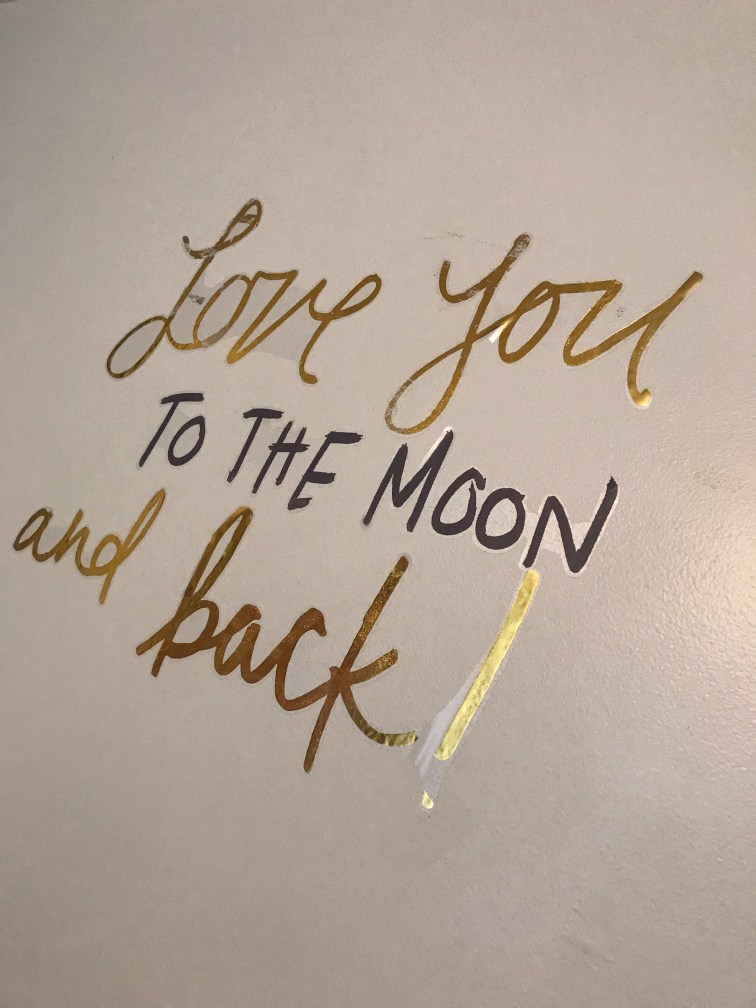 Love you
TO THE MOON
and back!